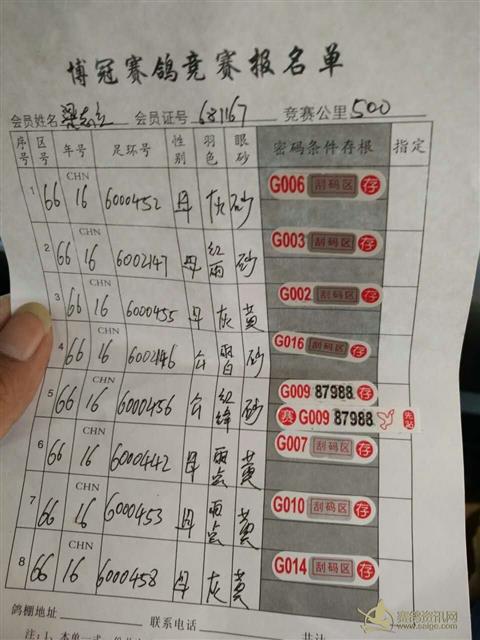 博冠赛鸽竞赛报名单
会员姓名 会员证号 681167 竞赛公里 500
序号 区号 年号 足环号 性别 羽色 眼砂 密码条件存根 指定
1 66 CHN 16 6000452 母 灰 砂 G006 刮码区 存
2 66 CHN 16 6002147 母 红雨 砂 G003 刮码区 存
3 66 CHN 16 6000455 母 灰 黄 G002 刮码区 存
4 66 CHN 16 6002146 公 雨白 砂 G016 刮码区 存
5 66 CHN 16 6000456 公 红绛 砂 G009 87988 存
赛 G009 87988
6 66 CHN 16 6000442 母 雨点 黄 G007 刮码区 存
7 66 CHN 16 6000453 母 雨点 黄 G010 刮码区 存
8 66 CHN 16 6000458 母 灰 黄 G014 刮码区 存
鸽棚地址 联系电话 共计
注：1、本单一式
赛鸽资讯网
www.saige.com